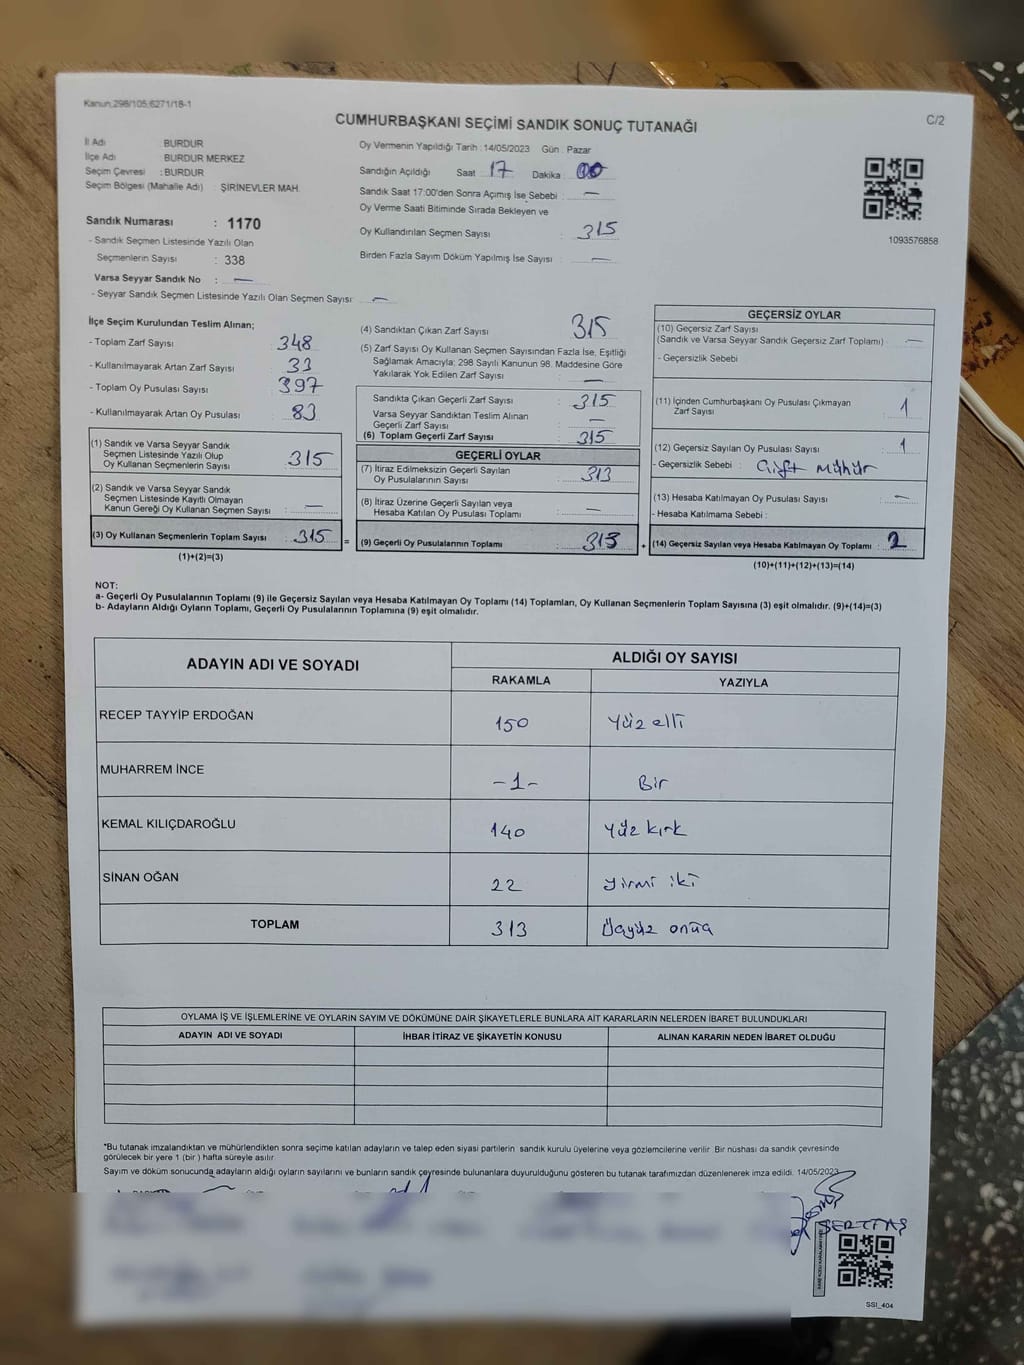 Kanun;298/105;6271/18-1
C/2
CUMHURBAŞKANI SEÇİMİ SANDIK SONUÇ TUTANAĞI
İl Adı : BURDUR
İlçe Adı : BURDUR MERKEZ
Seçim Çevresi : BURDUR
Seçim Bölgesi (Mahalle Adı) : ŞİRİNEVLER MAH.
Sandık Numarası : 1170
- Sandık Seçmen Listesinde Yazılı Olan
Seçmenlerin Sayısı : 338
Varsa Seyyar Sandık No : —
- Seyyar Sandık Seçmen Listesinde Yazılı Olan Seçmen Sayısı : —
Oy Vermenin Yapıldığı Tarih : 14/05/2023 Gün : Pazar
Sandığın Açıldığı Saat 17 Dakika : 00
Sandık Saat 17:00'den Sonra Açımış İse Sebebi : —
Oy Verme Saati Bitiminde Sırada Bekleyen ve
Oy Kullandırılan Seçmen Sayısı : 315
Birden Fazla Sayım Döküm Yapılmış İse Sayısı : —
1093576858
İlçe Seçim Kurulundan Teslim Alınan;
- Toplam Zarf Sayısı : 348
- Kullanılmayarak Artan Zarf Sayısı : 33
- Toplam Oy Pusulası Sayısı : 397
- Kullanılmayarak Artan Oy Pusulası : 83
(1) Sandık ve Varsa Seyyar Sandık
Seçmen Listesinde Yazılı Olup
Oy Kullanan Seçmenlerin Sayısı : 315
(2) Sandık ve Varsa Seyyar Sandık
Seçmen Listesinde Kayıtlı Olmayan
Kanun Gereği Oy Kullanan Seçmen Sayısı : —
(3) Oy Kullanan Seçmenlerin Toplam Sayısı : 315 =
(1)+(2)=(3)
(4) Sandıktan Çıkan Zarf Sayısı : 315
(5) Zarf Sayısı Oy Kullanan Seçmen Sayısından Fazla İse, Eşitliği
Sağlamak Amacıyla; 298 Sayılı Kanunun 98. Maddesine Göre
Yakılarak Yok Edilen Zarf Sayısı : —
Sandıkta Çıkan Geçerli Zarf Sayısı : 315
Varsa Seyyar Sandıktan Teslim Alınan
Geçerli Zarf Sayısı : —
(6) Toplam Geçerli Zarf Sayısı : 315
GEÇERLİ OYLAR
(7) İtiraz Edilmeksizin Geçerli Sayılan
Oy Pusulalarının Sayısı : 313
(8) İtiraz Üzerine Geçerli Sayılan veya
Hesaba Katılan Oy Pusulası Toplamı : —
(9) Geçerli Oy Pusulalarının Toplamı : 313 +
GEÇERSİZ OYLAR
(10) Geçersiz Zarf Sayısı
(Sandık ve Varsa Seyyar Sandık Geçersiz Zarf Toplamı) : —
- Geçersizlik Sebebi :
(11) İçinden Cumhurbaşkanı Oy Pusulası Çıkmayan
Zarf Sayısı : 1
(12) Geçersiz Sayılan Oy Pusulası Sayısı : 1
- Geçersizlik Sebebi : Çift mühür
(13) Hesaba Katılmayan Oy Pusulası Sayısı : —
- Hesaba Katılmama Sebebi :
(14) Geçersiz Sayılan veya Hesaba Katılmayan Oy Toplamı : 2
(10)+(11)+(12)+(13)=(14)
NOT:
a- Geçerli Oy Pusulalarının Toplamı (9) ile Geçersiz Sayılan veya Hesaba Katılmayan Oy Toplamı (14) Toplamları, Oy Kullanan Seçmenlerin Toplam Sayısına (3) eşit olmalıdır. (9)+(14)=(3)
b- Adayların Aldığı Oyların Toplamı, Geçerli Oy Pusulalarının Toplamına (9) eşit olmalıdır.
ADAYIN ADI VE SOYADI ALDIĞI OY SAYISI
RAKAMLA YAZIYLA
RECEP TAYYİP ERDOĞAN 150 Yüz elli
MUHARREM İNCE -1- Bir
KEMAL KILIÇDAROĞLU 140 Yüz kırk
SİNAN OĞAN 22 Yirmi iki
TOPLAM 313 Üçyüz onüç
OYLAMA İŞ VE İŞLEMLERİNE VE OYLARIN SAYIM VE DÖKÜMÜNE DAİR ŞİKAYETLERLE BUNLARA AİT KARARLARIN NELERDEN İBARET BULUNDUKLARI
ADAYIN ADI VE SOYADI İHBAR İTİRAZ VE ŞİKAYETİN KONUSU ALINAN KARARIN NEDEN İBARET OLDUĞU
*Bu tutanak imzalandıktan ve mühürlendikten sonra seçime katılan adayların ve talep eden siyasi partilerin sandık kurulu üyelerine veya gözlemcilerine verilir. Bir nüshası da sandık çevresinde
görülecek bir yere 1 (bir ) hafta süreyle asılır.
Sayım ve döküm sonucunda adayların aldığı oyların sayılarını ve bunların sandık çevresinde bulunanlara duyurulduğunu gösteren bu tutanak tarafımızdan düzenlenerek imza edildi. 14/05/2023
SERTTAŞ
SSI_404